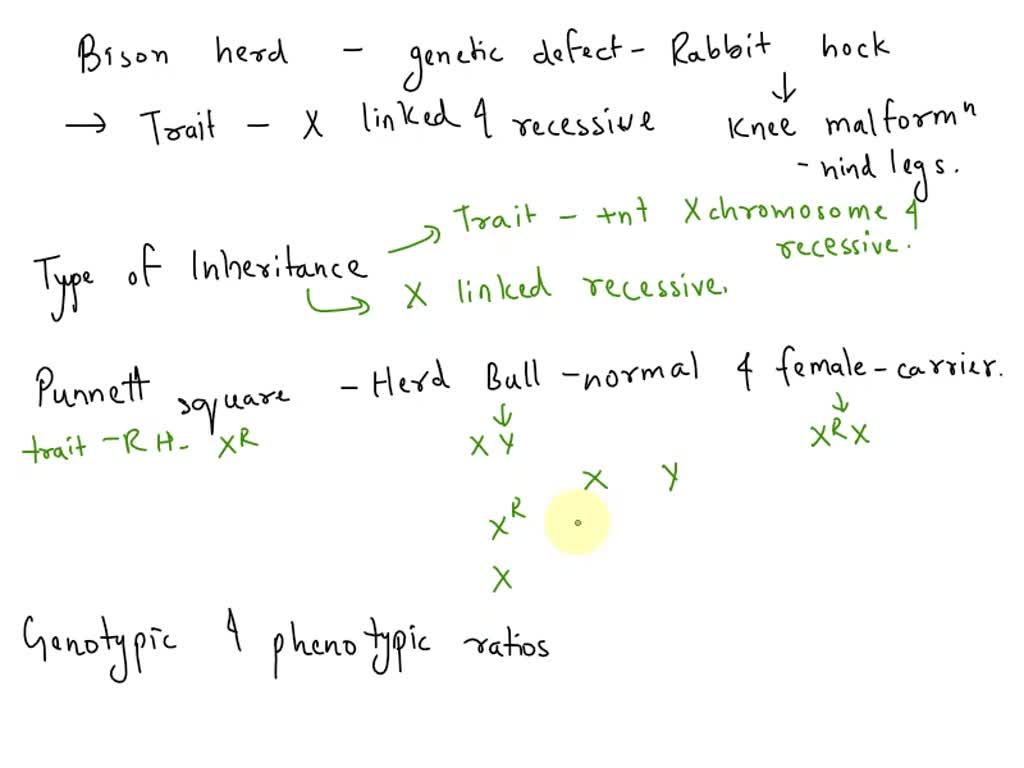 Bison herd - genetic defect - Rabbit hock
↓
→ Trait - X linked & recessive Knee malformⁿ
- hind legs.
Trait - +nt X chromosome &
recessive.
Type of Inheritance
X linked recessive.
Punnett square - Herd Bull - normal & female - carrier.
↓ ↓
trait - RH - Xᴿ X Y XᴿX
X Y
Xᴿ
X
Genotypic & phenotypic ratios